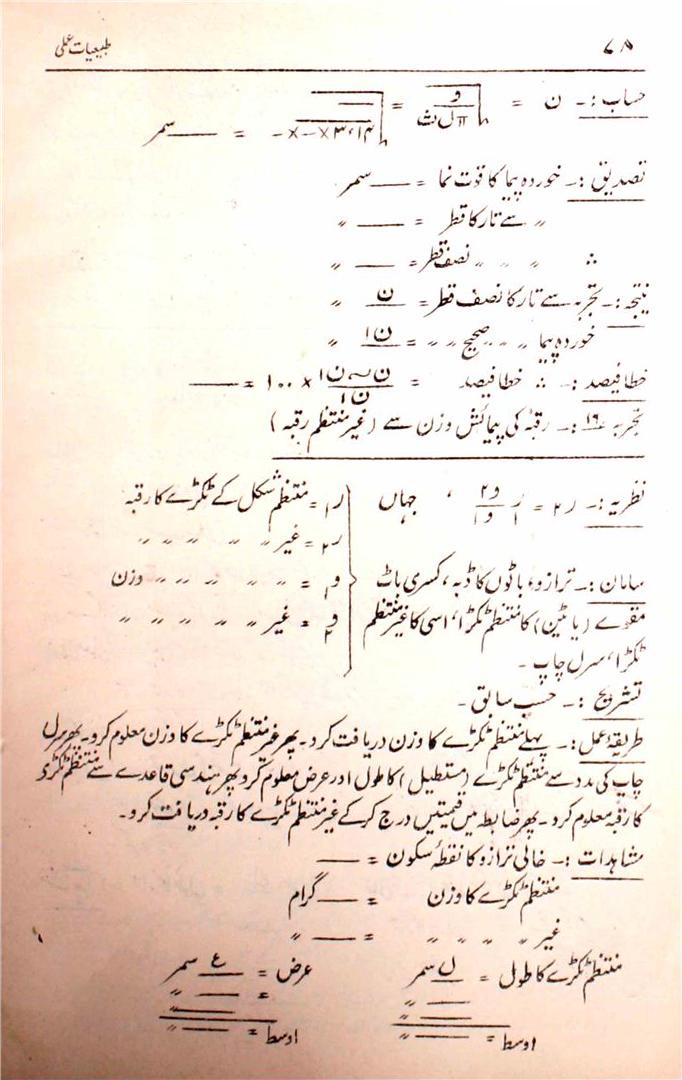 ۷۸ طبیعیات عملی
حساب :۔ ن = √(و / π ل ث) = √(— / ۳٫۱۴ × – × –) = — سمر
تصدیق :۔ خوردہ پیما کا قوت نما = — سمر
〃 سے تار کا قطر = — 〃
∴ 〃 〃 〃 نصف قطر = — 〃
نتیجہ :۔ تجربہ سے تار کا نصف قطر = ن 〃
خوردہ پیما 〃 〃 صحیح 〃 〃 = ن۱ 〃
خطا فیصد :۔ ∴ خطا فیصد = (ن ~ ن۱) / ن۱ × ۱۰۰ = —
تجربہ ۱۶ :۔ رقبہ کی پیمائش وزن سے (غیر منتظم رقبہ)
نظریہ :۔ ر۲ = ر۱ و۲ / و۱ ، جہاں
ر۱ = منتظم شکل کے ٹکڑے کا رقبہ
ر۲ = غیر 〃 〃 〃 〃 〃
و۱ = 〃 〃 〃 〃 〃 وزن
و۲ = غیر 〃 〃 〃 〃 〃
سامان :۔ ترازو، باٹوں کا ڈبہ، کسری باٹ
مقوے (یا ٹین) کا منتظم ٹکڑا، اسی کا غیر منتظم
ٹکڑا، سرل چاپ ۔
تشریح :۔ حسب سابق ۔
طریقۂ عمل :۔ پہلے منتظم ٹکڑے کا وزن دریافت کرو۔ پھر غیر منتظم ٹکڑے کا وزن معلوم کرو۔ پھر سرل
چاپ کی مدد سے منتظم ٹکڑے (مستطیل) کا طول اور عرض معلوم کرو پھر ہندسی قاعدے سے منتظم ٹکڑے
کا رقبہ معلوم کرو۔ پھر ضابطہ میں قیمتیں درج کرکے غیر منتظم ٹکڑے کا رقبہ دریافت کرو۔
مشاہدات :۔ خالی ترازو کا نقطۂ سکون = —
منتظم ٹکڑے کا وزن = — گرام
غیر 〃 〃 〃 〃 = — 〃
منتظم ٹکڑے کا طول = ل سمر عرض = ع سمر
— 〃 = — 〃
— 〃 — 〃
اوسط = — 〃 اوسط = — 〃